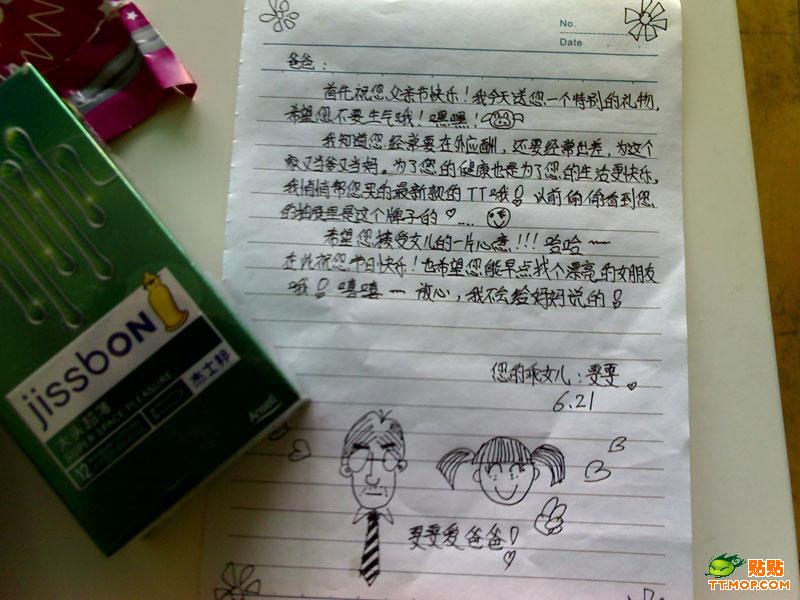 No.
Date
爸爸：
首先祝您父亲节快乐！我今天送您一个特别的礼物，
希望您不要生气哦！嘿嘿！
我知道您经常要在外应酬，还要经常出差，为这个
家又当爹又当妈。为了您的健康也是为了您的生活更快乐，
我悄悄帮您买的最新款的TT哦！以前偷偷看到您
的抽屉里是这个牌子的……
希望您接受女儿的一片心意！！！哈哈~~
在此祝您节日快乐！也希望您能早点找个漂亮的女朋友
哦！嘻嘻~~放心，我不会给妈妈说的！
您的乖女儿：雯雯
6.21
雯雯爱爸爸！
jissbon
杰士邦
大头超薄
SUPER SPACE PLEASURE
12
Ansell
贴贴
TT.MOP.COM